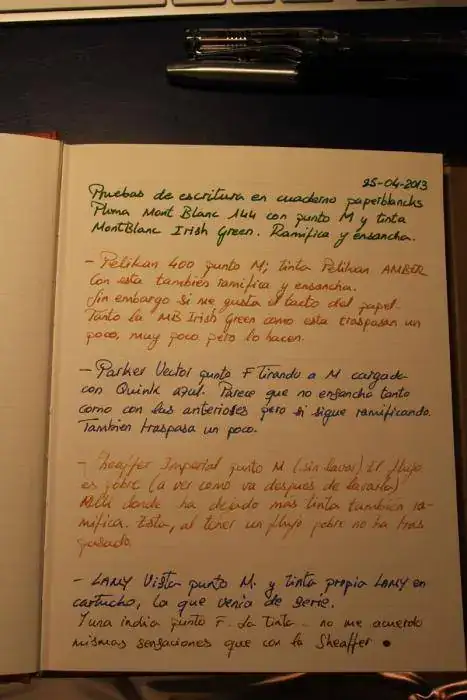 25-04-2013
Pruebas de escritura en cuaderno paperblancks
Pluma Mont Blanc 144 con punto M y tinta
MontBlanc Irish Green. Ramifica y ensancha.
- Pelikan 400 punto M; tinta Pelikan AMBER
Con esta también ramifica y ensancha.
Sin embargo si me gusta el tacto del papel.
Tanto la MB Irish Green como esta traspasan un
poco, muy poco pero lo hacen.
- Parker Vector punto F Tirando a M cargada
con Quink azul. Parece que no ensancha tanto
como con las anteriores pero si sigue ramificando.
Tambien traspasa un poco.
- Sheaffer Imperial punto M (sin lavar) El flujo
es pobre (a ver como va despues de lavarla)
donde ha dejado más tinta también ra-
mifica. Esta, al tener un flujo pobre no ha tras
pasado.
- LAMY Vista punto M. y tinta propia LAMY en
cartucho, la que venía de serie.
Y una india punto F. La tinta no me acuerdo
mismas sensaciones que con la Sheaffer